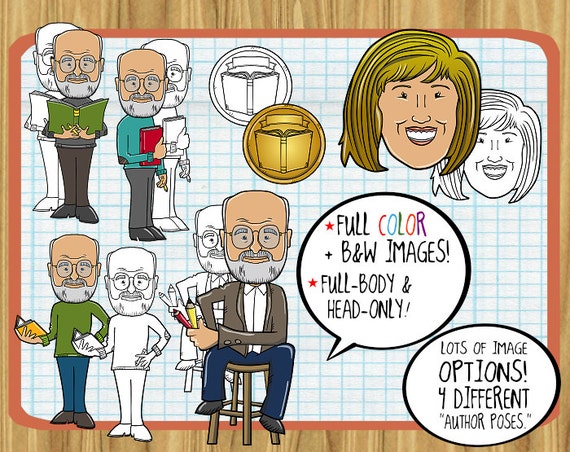 ★FULL COLOR
+ B&W IMAGES!
★FULL-BODY &
HEAD-ONLY!
LOTS OF IMAGE
OPTIONS!
4 DIFFERENT
"AUTHOR POSES."